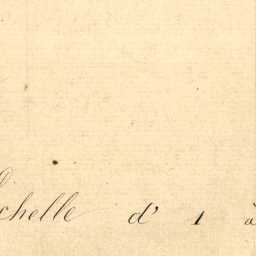 chelle d' 1 à